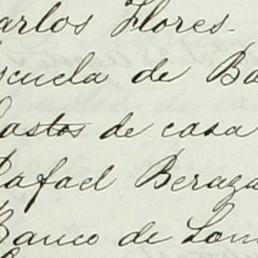 arlos Flores.
scuela de Ba
Gastos de casa
Rafael Beraza
Banco de Lon